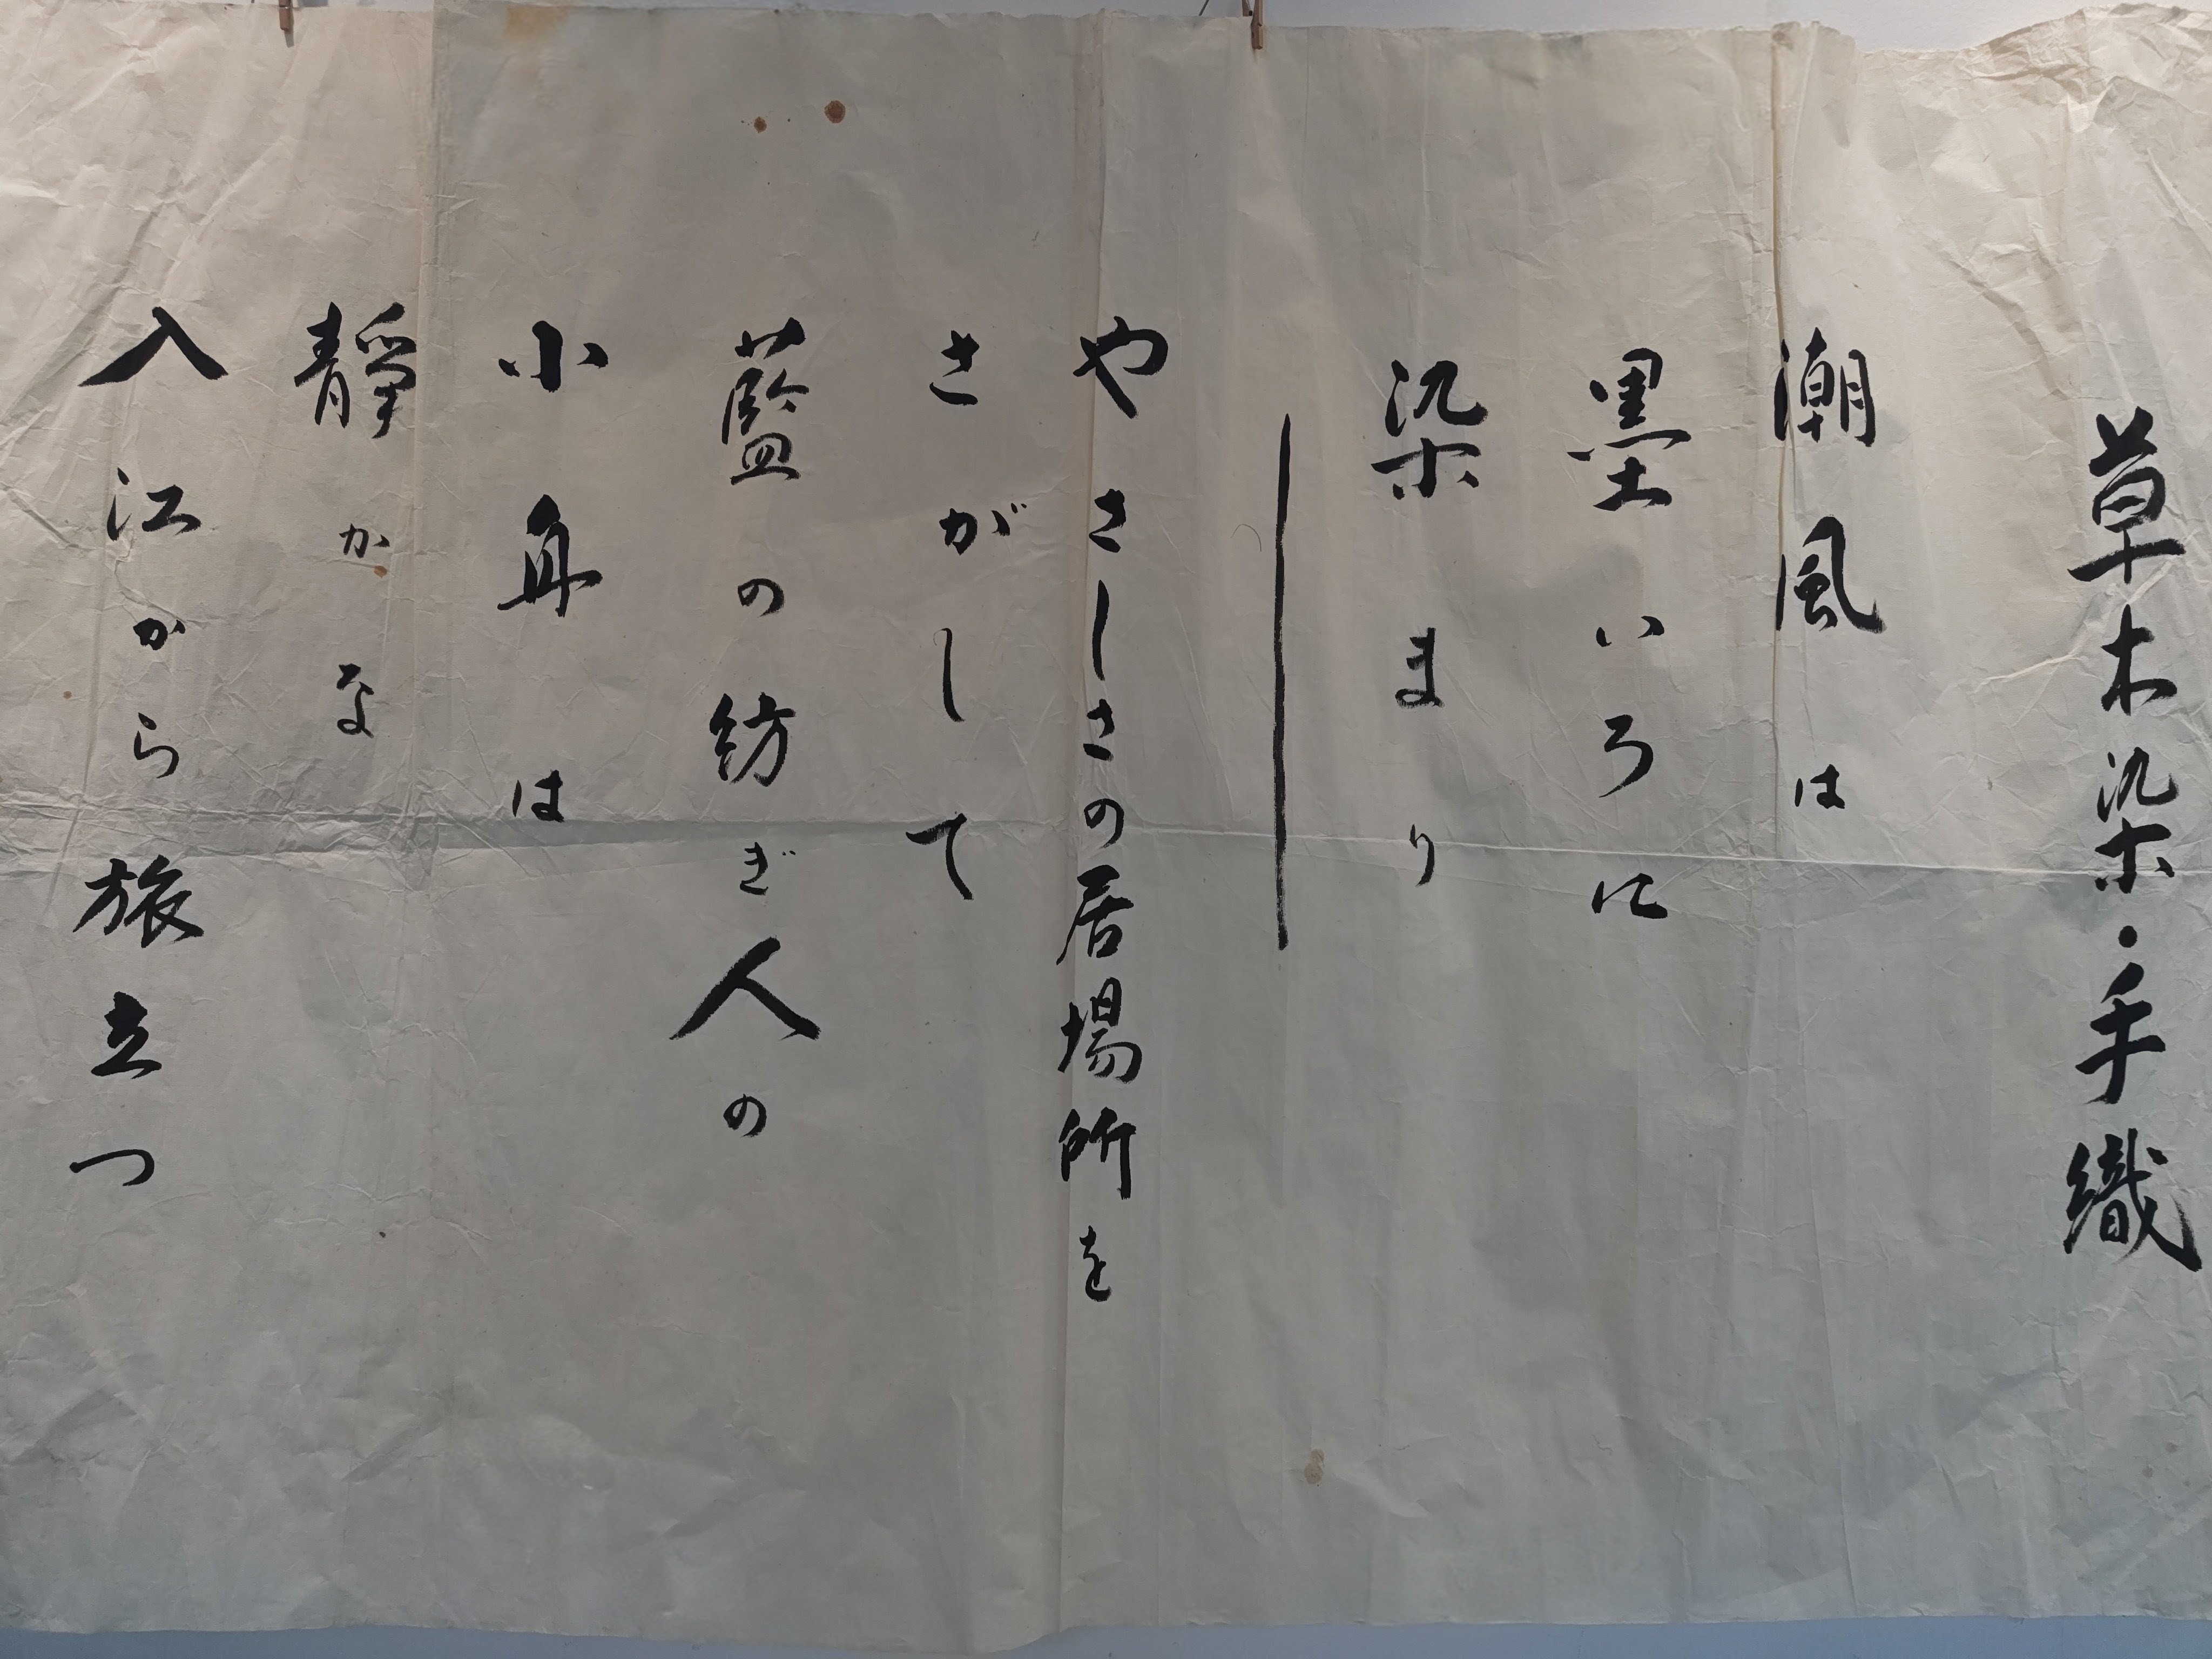 草木染・手織
潮風は
墨いろに
染まり
やさしさの居場所を
さがして
藍の紡ぎ人の
小舟は
靜かな
入江から旅立つ